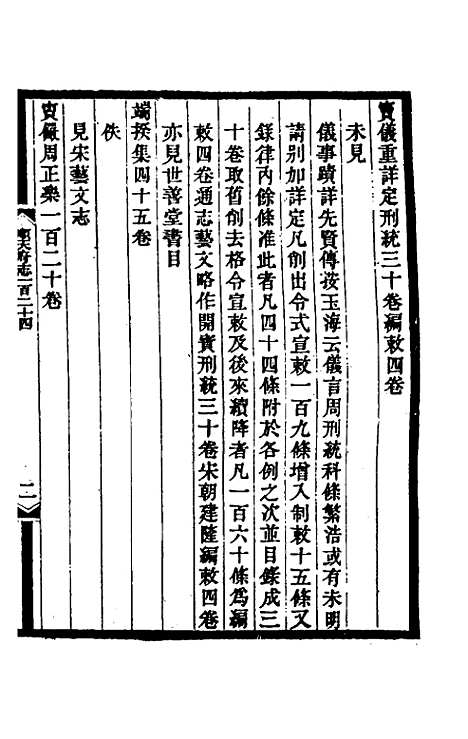 竇儀重詳定刑統三十卷編敕四卷
未見
儀事蹟詳先賢傳按玉海云儀言周刑統科條繁浩或有未明
請別加詳定凡創出令式宣敕一百九條增入制敕十五條又
錄律內餘條准此者凡四十四條附於各例之次並目錄成三
十卷取舊創去格令宣敕及後來續降者凡一百六十條為編
敕四卷通志藝文略作開寶刑統三十卷宋朝建隆編敕四卷
亦見世善堂書目
端揆集四十五卷
佚
見宋藝文志
竇儼周正樂一百二十卷
順天府志一百二十四
二